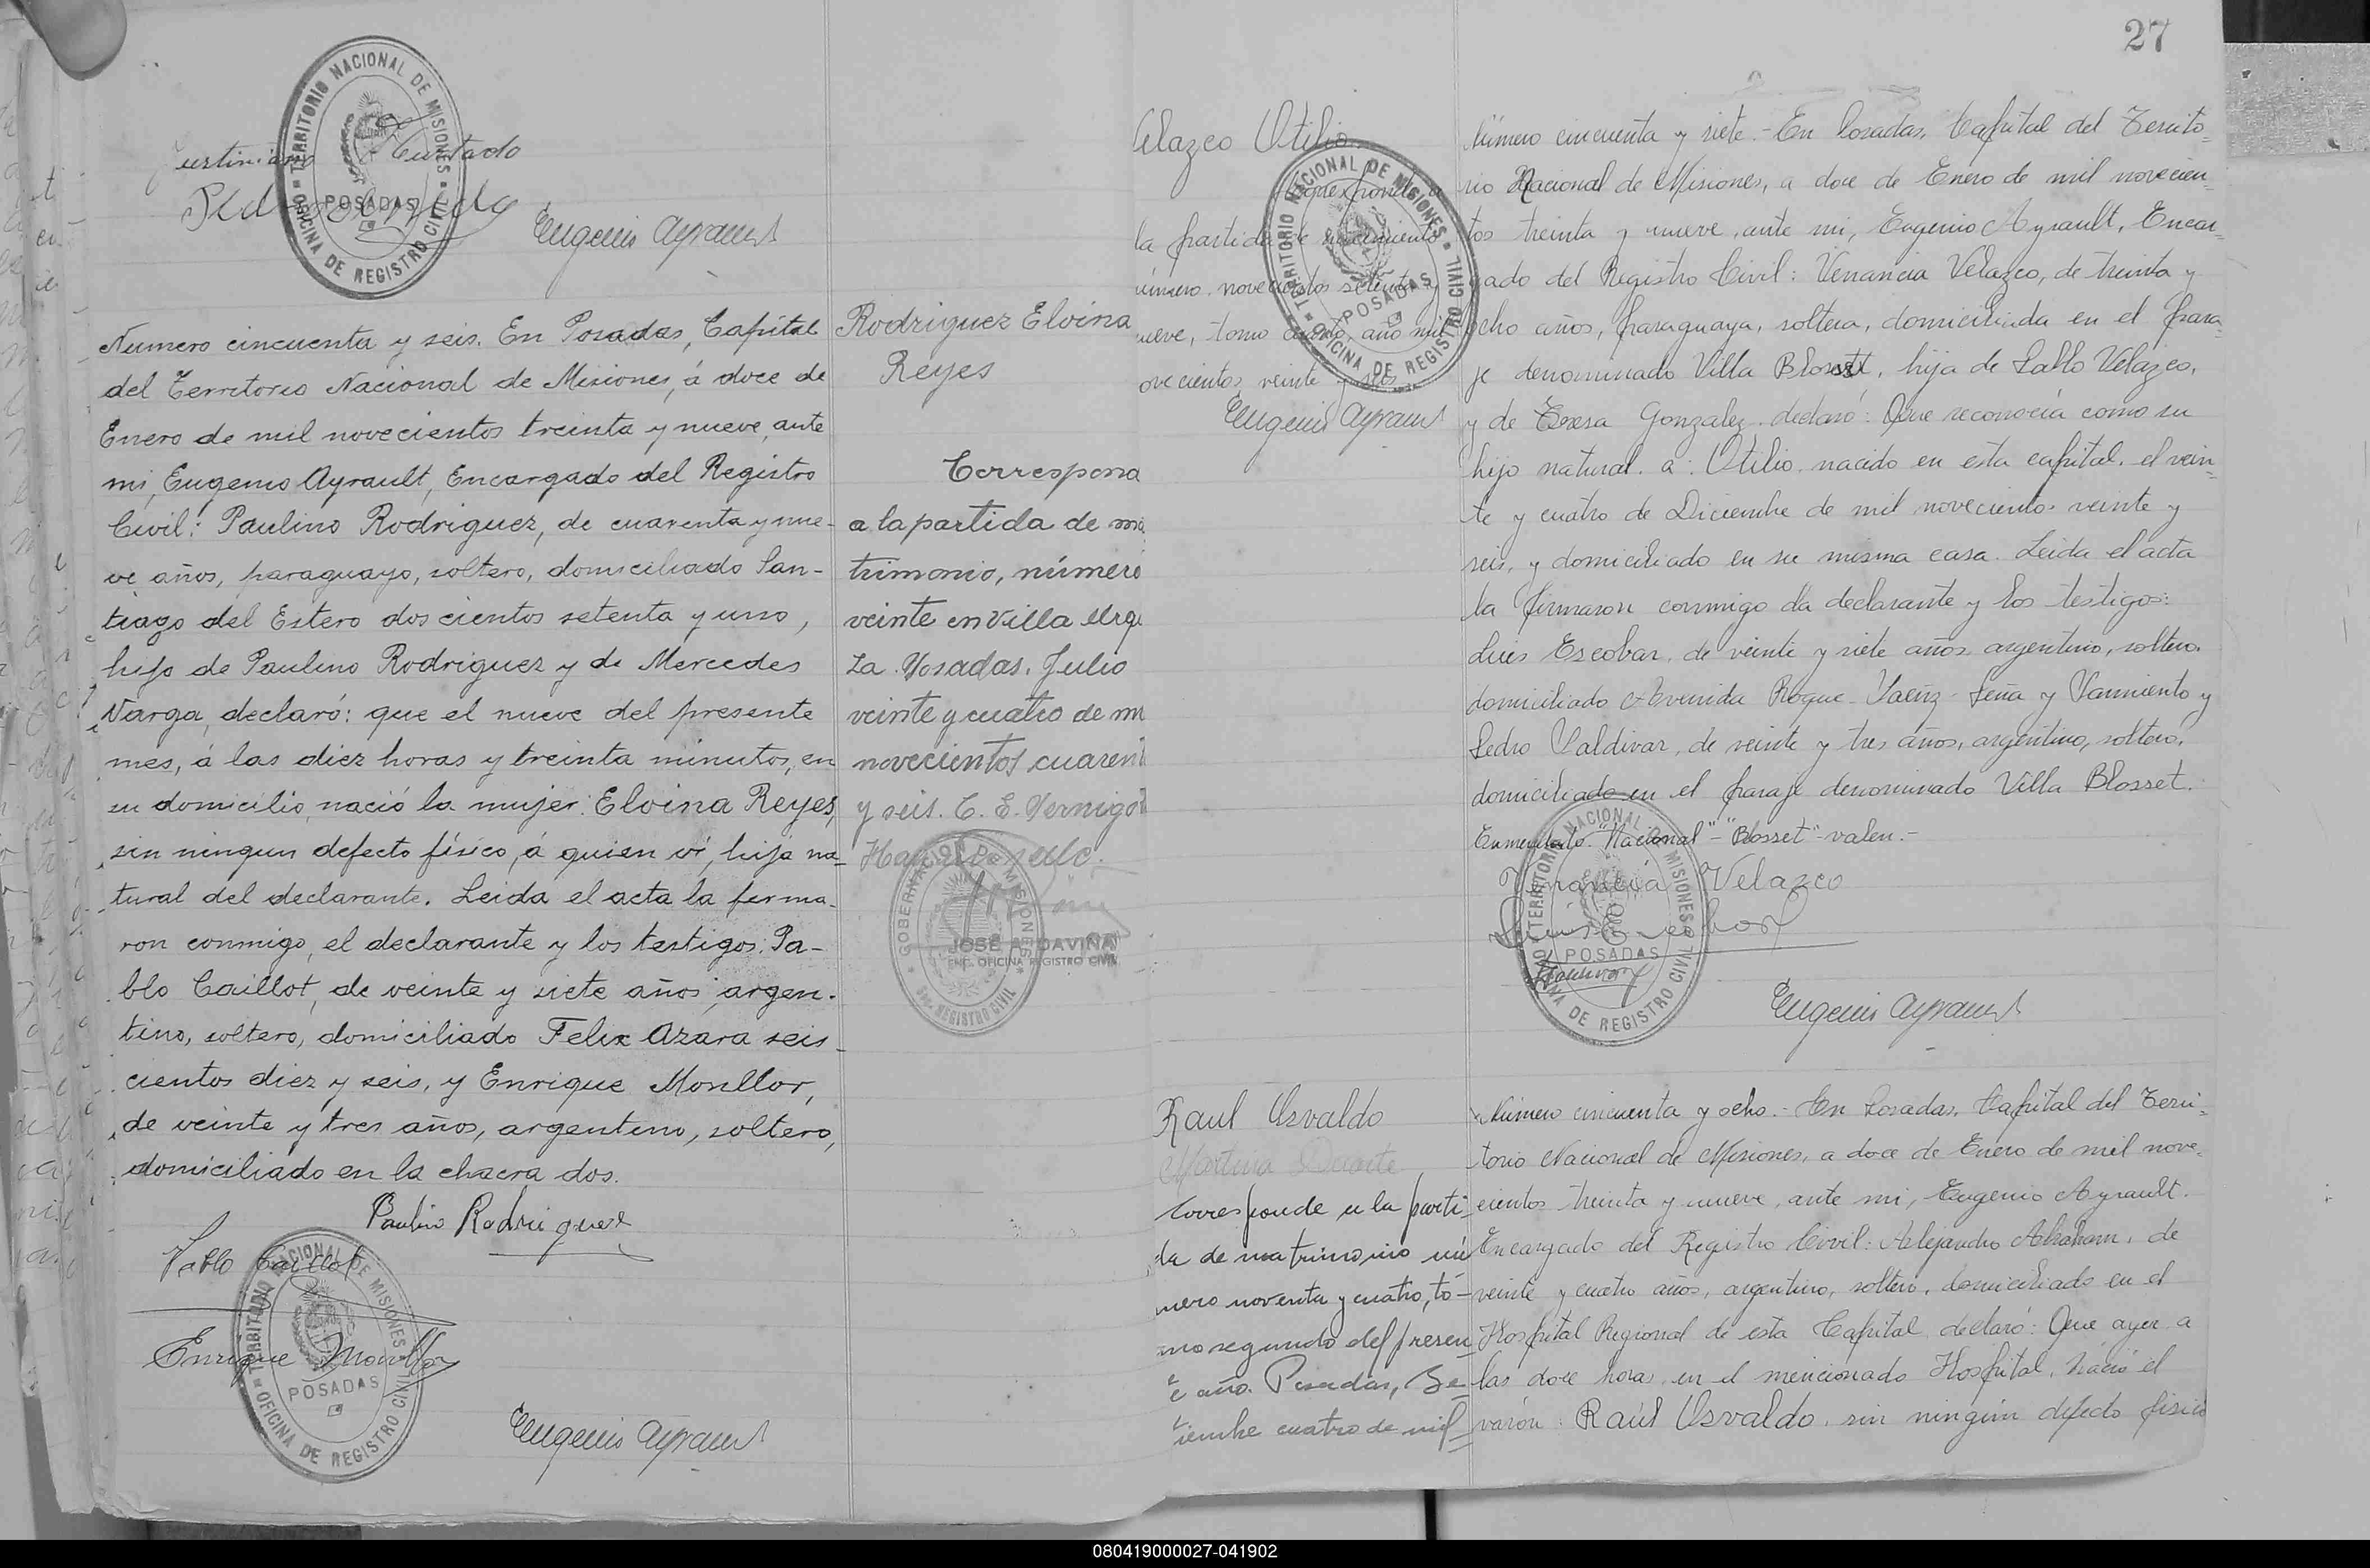 Justiniano Hurtado
Eugenio Ayrault
TERRITORIO NACIONAL DE MISIONES
POSADAS
OFICINA DE REGISTRO CIVIL
Numero cincuenta y seis. En Posadas, Capital
del Territorio Nacional de Misiones, á doce de
Enero de mil novecientos treinta y nueve, ante
mi, Eugenio Ayrault, Encargado del Registro
Civil: Paulino Rodriguez, de cuarenta y nue-
ve años, paraguayo, soltero, domiciliado San-
tiago del Estero doscientos setenta y uno,
hijo de Paulino Rodriguez y de Mercedes
Varga, declaró: que el nueve del presente
mes, á las diez horas y treinta minutos, en
su domicilio, nació la mujer: Elvina Reyes,
sin ningun defecto físico, á quien ví, hija na-
tural del declarante. Leida el acta la firma-
ron conmigo, el declarante y los testigos: Pa-
blo Caillot, de veinte y siete años, argen-
tino, soltero, domiciliado Felix Azara seis-
cientos diez y seis, y Enrique Monllor,
de veinte y tres años, argentino, soltero,
domiciliado en la chacra dos.
Paulino Rodriguez
Pablo Caillot
Enrique Monllor
TERRITORIO NACIONAL DE MISIONES
POSADAS
OFICINA DE REGISTRO CIVIL
Eugenio Ayrault
Rodriguez Elvina
Reyes
Correspond
a la partida de ma
trimonio, número
veinte en Villa Urqu
za. Posadas, Julio
veinte y cuatro de m
novecientos cuarent
y seis. C. E.
GOBERNACION DE MISIONES
REGISTRO CIVIL
JOSE A. DAVIÑA
ENC. OFICINA REGISTRO CIVIL
27
Velazco Otilio
Corresponde a
la partida de nacimiento
número novecientos setenta y
nueve, tomo cuarto, año mil
ovecientos veinte y seis
Eugenio Ayrault
TERRITORIO NACIONAL DE MISIONES
POSADAS
OFICINA DE REGISTRO CIVIL
Número cincuenta y siete.- En Posadas, Capital del Territo-
rio Nacional de Misiones, a doce de Enero de mil novecien-
tos treinta y nueve, ante mi, Eugenio Ayrault, Encar-
gado del Registro Civil: Venancia Velazco, de treinta y
ocho años, paraguaya, soltera, domiciliada en el para-
je denominado Villa Blosset, hija de Pablo Velazco,
y de Teresa Gonzalez, declaró: Que reconocía como su
hijo natural, a: Otilio, nacido en esta capital, el vein-
te y cuatro de Diciembre de mil novecientos veinte y
seis, y domiciliado en su misma casa. Leida el acta
la firmaron conmigo la declarante y los testigos:
Luis Escobar, de veinte y siete años, argentino, soltero,
domiciliado Avenida Roque Saenz Peña y Sarmiento y
Pedro Saldivar, de veinte y tres años, argentino, soltero,
domiciliado en el paraje denominado Villa Blosset.
Enmendado: "Nacional"-"Blosset"-valen.-
Venancia Velazco
Luis Escobar
Eugenio Ayrault
TERRITORIO NACIONAL DE MISIONES
POSADAS
OFICINA DE REGISTRO CIVIL
Raul Osvaldo
Martina Duarte
Corresponde a la parti-
da de matrimonio nú-
mero noventa y cuatro, to-
mo segundo del presen-
te año. Posadas, Se-
tiembre cuatro de mil
Número cincuenta y ocho.- En Posadas, Capital del Terri-
torio Nacional de Misiones, a doce de Enero de mil nove-
cientos treinta y nueve, ante mi, Eugenio Ayrault,
Encargado del Registro Civil: Alejandro Abraham, de
veinte y cuatro años, argentino, soltero, domiciliado en el
Hospital Regional de esta Capital, declaró: Que ayer a
las doce horas, en el mencionado Hospital, nació el
varón: Raúl Osvaldo, sin ningún defecto fisico
080419000027-041902